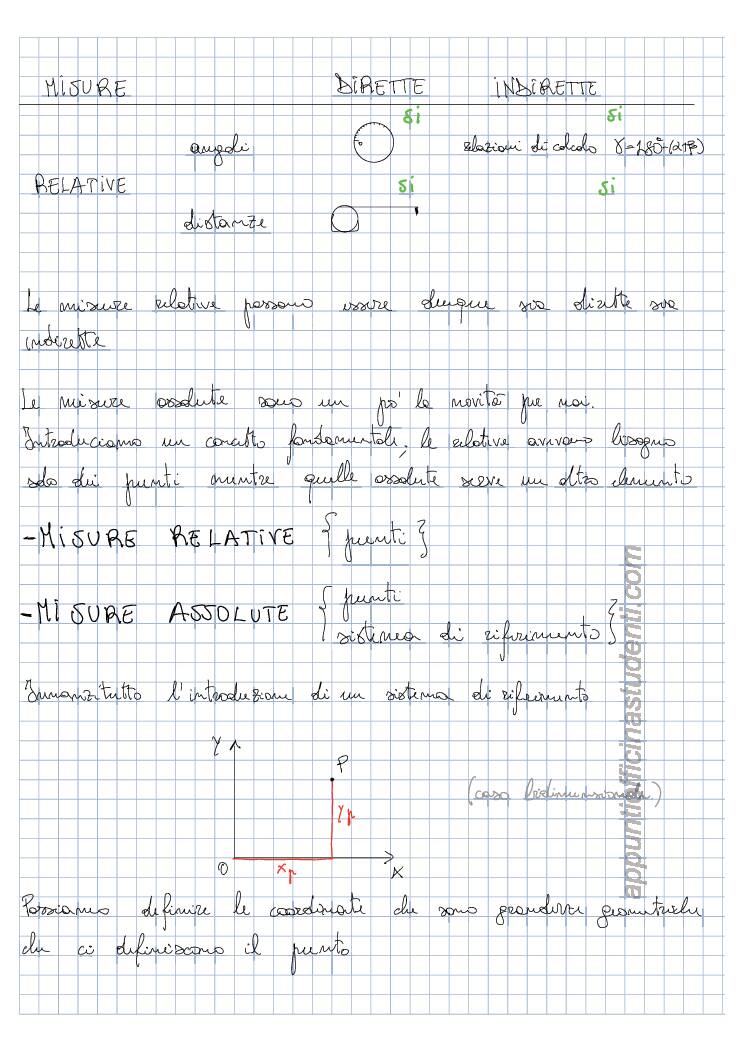 MISURE DIRETTE INDIRETTE
si si
angoli relazioni di calcolo γ=180°-(α+β)
RELATIVE si si
distanze
Le misure relative possono essere dunque sia dirette sia
indirette
Le misure assolute sono un po' la novità per noi.
Introduciamo un concetto fondamentale, le relative avevano bisogno
solo dei punti mentre quelle assolute serve un altro elemento
-MISURE RELATIVE { punti }
-MISURE ASSOLUTE { punti
sistema di riferimento }
Innanzitutto l'introduzione di un sistema di riferimento
Y
P
(caso bidimensionale)
Yp
O xp X
Possiamo definire le coordinate che sono grandezze geometriche
che ci definiscono il punto
appuntiofficinastudenti.com